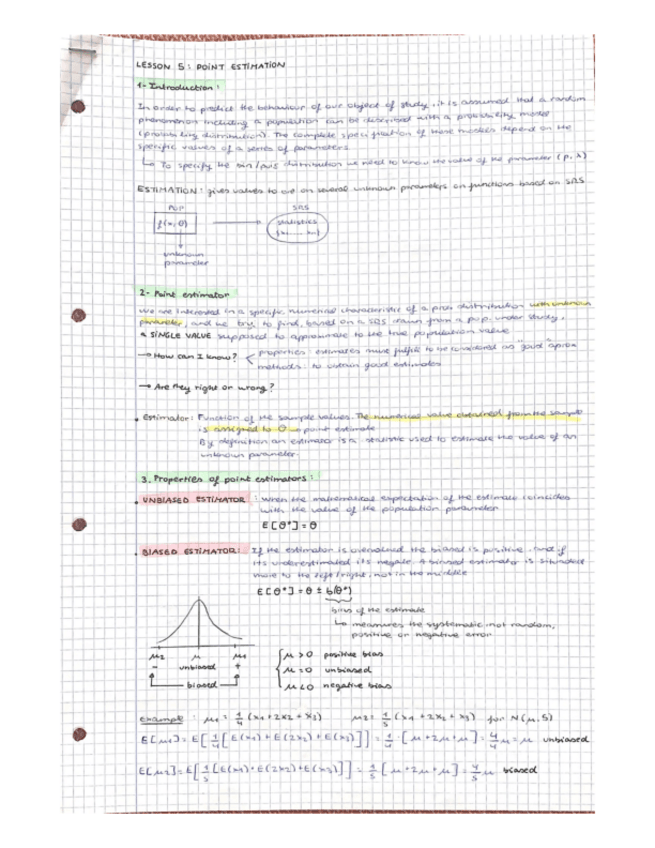 LESSON 5: POINT ESTIMATION
1- Introduction:
In order to predict the behaviour of our object of study, it is assumed that a random
phenomenon including a population can be described with a probability model
(probability distribution). The complete specification of these models depend on the
specific values of a series of parameters
↳ To specify the bin/pois distribution we need to know the value of the parameter (p, λ)
ESTIMATION: gives values to one on several unknown parameters on functions based on SRS
POP SRS
f(x, θ) → statistics
(x1 ...... xn)
unknown
parameter
2- Point estimator
We are interested in a specific numerical characteristic of a distribution with unknown
parameter, and we try to find, based on a SRS drawn from a pop. under study,
a SINGLE VALUE supposed to approximate to the true population value
→ How can I know? properties: estimates must fulfill to be considered as "good" aprox
methods: to obtain good estimates
→ Are they right or wrong?
• Estimator: Function of the sample values. The numerical value obtained from the sample
is assigned to θ → point estimate
By definition an estimator is a statistic used to estimate the value of an
unknown parameter.
3. Properties of point estimators:
• UNBIASED ESTIMATOR: When the mathematical expectation of the estimate coincides
with the value of the population parameter
E[θ*] = θ
• BIASED ESTIMATOR: If the estimator is overvalued the biased is positive, and if
its underestimated its negative. A biased estimator is situated
more to the left/right, not in the middle
E[θ*] = θ ± b(θ*)
bias of the estimate
↳ measures the systematic, not random,
positive or negative error
μ2 μ μ1
- unbiased +
biased
μ > 0 positive bias
μ = 0 unbiased
μ < 0 negative bias
example: μ1 = 1/4 (x1 + 2x2 + x3) μ2 = 1/5 (x1 + 2x2 + x3) for N(μ, 5)
E[μ1] = E[1/4 [E(x1) + E(2x2) + E(x3)]] = 1/4 · [μ + 2μ + μ] = 4/4 μ = μ unbiased
E[μ2] = E[1/5 [E(x1) + E(2x2) + E(x3)]] = 1/5 [μ + 2μ + μ] = 4/5 μ biased